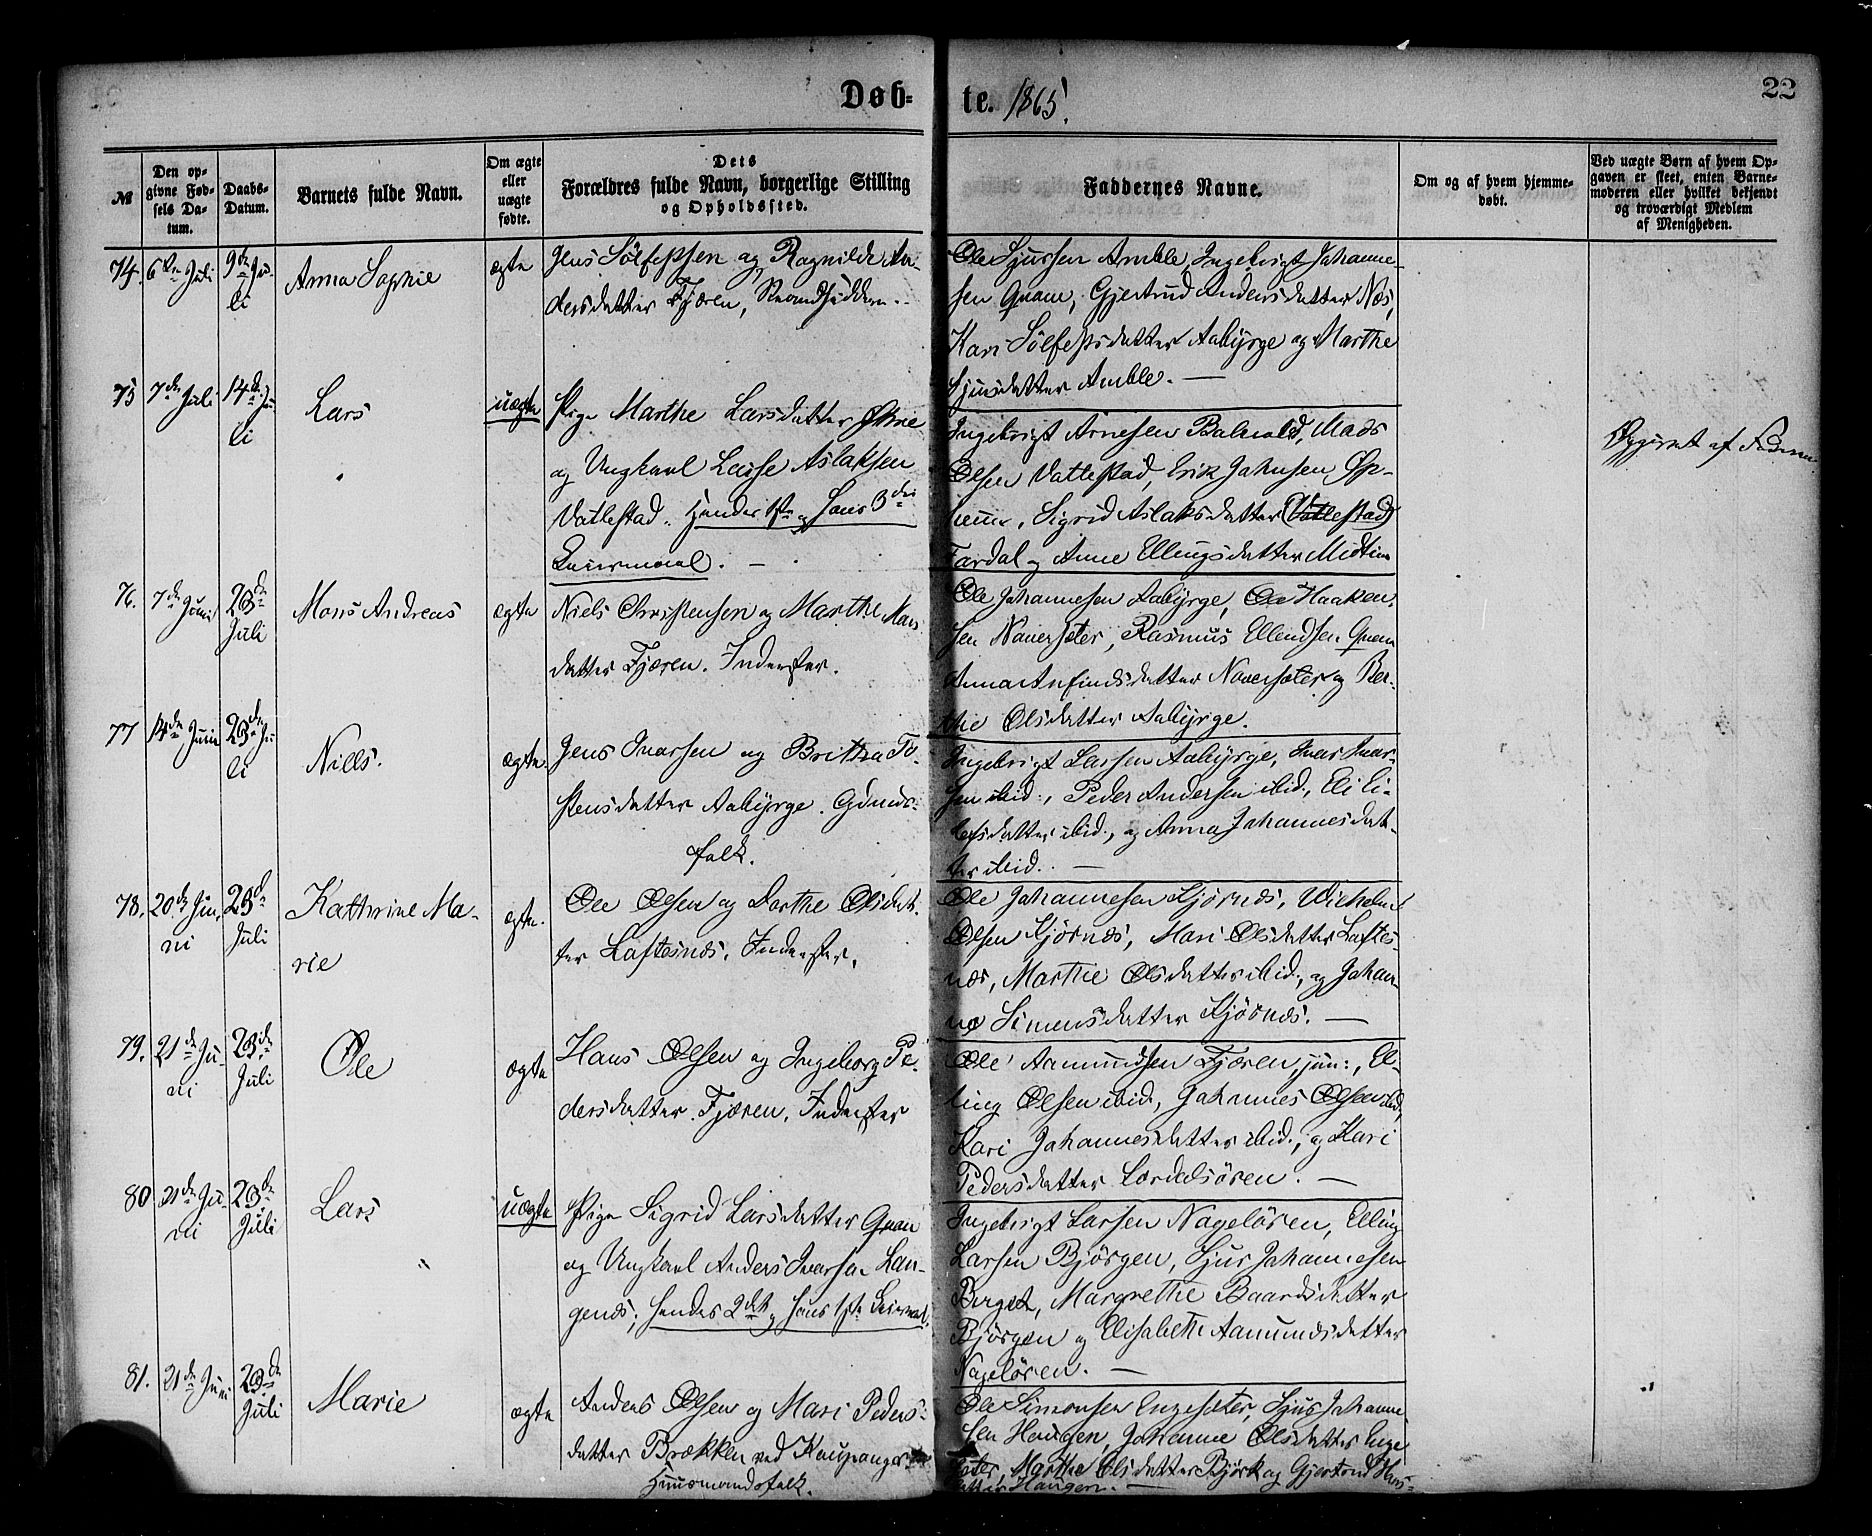 Døb-
te. 1865.
22
№
Den op-
givne Fød-
sels Da-
tum.
Daabs-
Datum.
Barnets fulde Navn.
Om ægte
eller
uægte
fødte.
Dets
Forældres fulde Navn, borgerlige Stilling
og Opholdssted.
Faddernes Navne.
Om og af hvem hjemme-
døbt.
Ved uægte Børn af hvem Op-
gaven er skeet, enten Barne-
moderen eller hvilket bekjendt
og troværdigt Medlem
af Menigheden.
74. 6te Juli
9de Ju-
li
Anna Sophie
ægte
Jens Sølfestsen og Ragnilde An-
dersdatter Fjæren, Strandsiddere.
Ole Sjursen Amble, Ingebrigt Johanne-
sen Quam, Gjertrud Andersdatter Næs,
Kari Sølfestsdatter Aabyrge og Marthe
Sjursdatter Amble. —
75 7de Juli
14de Ju-
li
Lars
uægte
Pige Marthe Larsdatter
og Ungkarl Lasse Aslaksen
Vatlestad. Hendes 1ste og Hans 3die
Leiermaal. —
Ingebrigt Arnesen Mads
Olsen Vatlestad, Erik Johnsen Op-
heim, Sigrid Aslaksdatter (Vatlestad)
Fardal og Anne Ellingsdatter
Opgivet af Faderen
76. 7de Juni
23de
Juli
Mons Andreas
ægte
Niels Christensen og Marthe Mons
datter Fjæren. Inderster.
Ole Johannesen Aabyrge, Ole Haaken-
sen Naversæter, Rasmus Ellendsen Quam
Anna Anfindsdatter Naversæter og Ber-
the Olsdatter Aabyrge.
77 14de Juni
23de Ju-
li
Niels.
ægte.
Jens Ivarsen og Britha To-
stensdatter Aabyrge. Gaards-
folk.
Ingebrigt Larsen Aabyrge, Ivar Ivar-
sen ibid:, Peder Andersen ibid., Eli El-
lefsdatter ibid., og Anna Johannesdat-
ter ibid. —
78. 20de Ju-
ni
23de
Juli
Kathrine Ma-
rie
ægte.
Ole Olsen og Dorthe Olsdat-
ter Loftesnæs. Inderster.
Ole Johannesen Kjørnæs, Wilhelm
Olsen Kjørnæs, Mari Olsdatter Loftes-
næs, Marthe Olsdatter ibid., og Johan-
ne Simensdatter Kjørnæs. —
79. 21de Ju-
ni
23de
Juli
Ole
ægte
Hans Olsen og Ingeborg Pe-
dersdatter Fjæren, Inderster
Ole Aamundsen Fjæren, jun:, El-
ling Olsen ibid, Johannes Olsen ibid,
Kari Johannesdatter ibid., og Kari
Pedersdatter Loredsören. —
80 21de Ju-
ni
23de
Juli
Lars
uægte
Pige Sigrid Larsdatter Quam
og Ungkarl Anders Ivarsen Lan-
genæs; hendes 2det og hans 1ste Leiermaal.
Ingebrigt Larsen Nageløren, Elling
Larsen Bjørgen, Sjur Johannesen
Berget, Margrethe Baardsdatter
Bjørgen og Elisabeth Aamundsdatter
Nageløren. —
81. 21de Juni
23de
Juli
Marie
ægte
Anders Olsen og Mari Peders-
datter Brækken ved Kaupanger
Huusmandsfolk.
Ole Simonsen Engesæter, Sjur Johanne-
sen Haugen, Johanne Olsdatter Enge
sæter, Marthe Olsdatter Bjørk og Gjertrud Hans-
datter Haugen. —